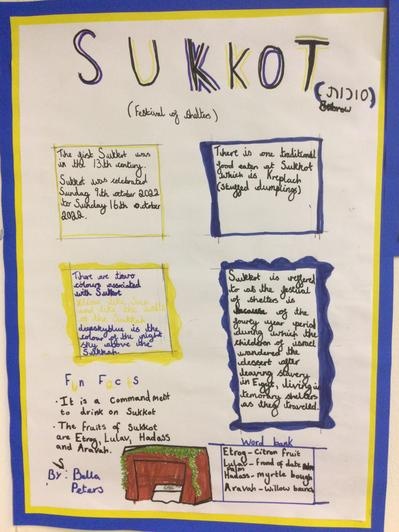 SUKKOT
(סוכות)
(Festival of shelters)
The first Sukkot was
in the 13th century.
Sukkot was celebrated
Sunday 9th october 2022
to Sunday 16th october
2022.
There is one traditional
food eaten at Sukkot
which is Kreplach
(stuffed dumplings)
There are two
colours associated
with Sukkot
of the Sukkah
deepskyblue is the
colour of the night
sky above the
Sukkah.
Sukkot is reffered
to as the festival
of shelters is
because of the
fourty year period
during which the
children of israel
wandered the
dessert after
leaving slavery
in Egypt, living in
temorary shelters
as they traveled.
Fun Facts
• It is a commandment
to drink on Sukkot
• The fruits of Sukkot
are Etrog, Lulav, Hadass
and Aravah.
By: Bella
Peters
Word bank
Etrog - Citron fruit
Lulav - frond of date
palm
Hadass - myrtle bough
Aravah - willow